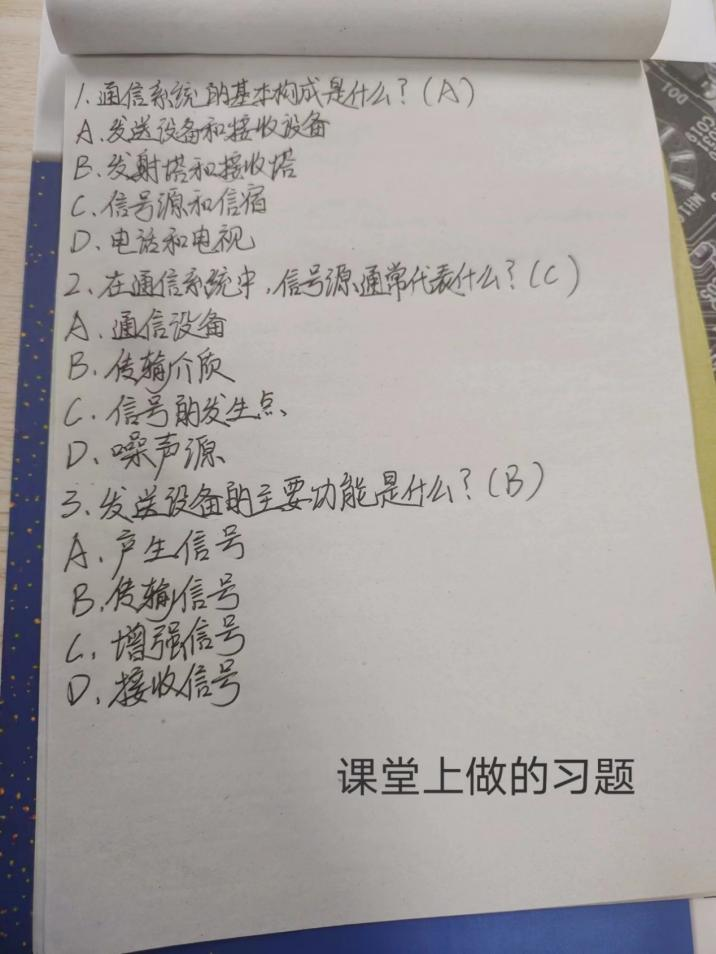 1.通信系统的基本构成是什么?(A)
A.发送设备和接收设备
B.发射塔和接收塔
C.信号源和信宿
D.电话和电视
2.在通信系统中,信号源通常代表什么?(C)
A.通信设备
B.传输介质
C.信号的发生点
D.噪声源
3.发送设备的主要功能是什么?(B)
A.产生信号
B.传输信号
C.增强信号
D.接收信号
课堂上做的习题
100